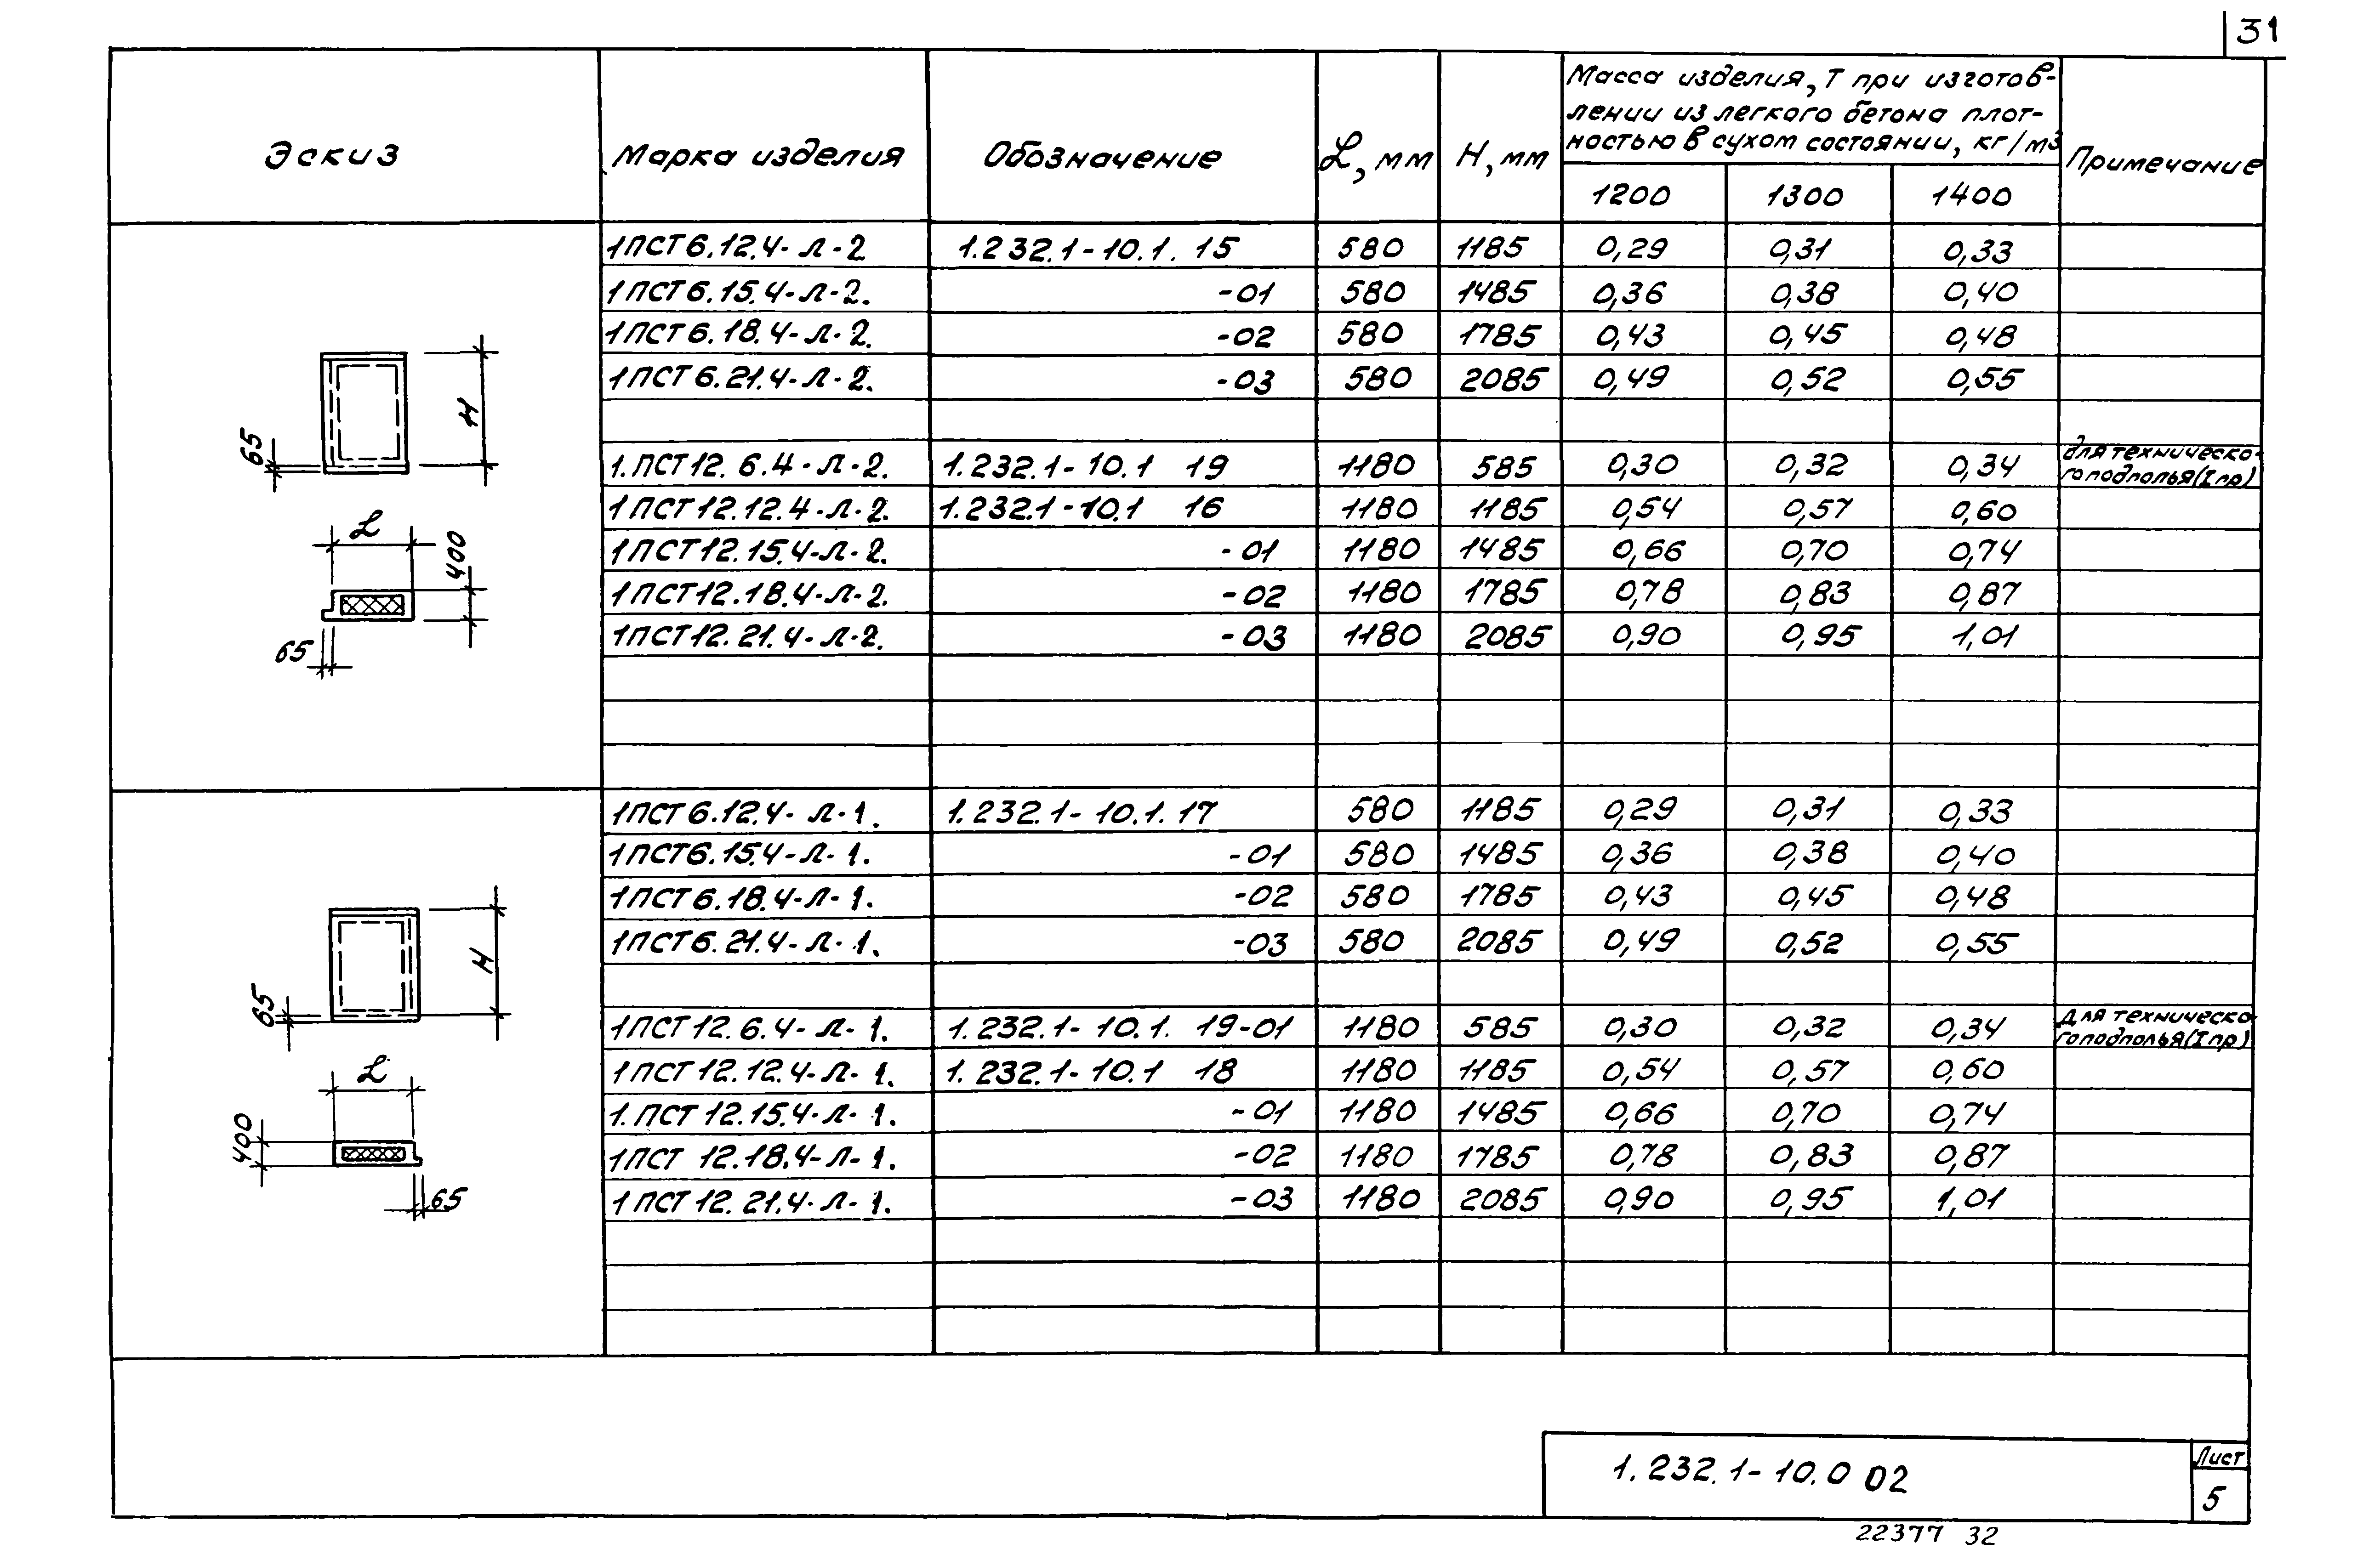 31
Эскиз Марка изделия Обозначение L, мм H, мм Масса изделия, Т при изготов-
лении из легкого бетона плот-
ностью в сухом состоянии, кг/м3 Примечание
1200 1300 1400
1ПСТ6.12.4-Л-2 1.232.1-10.1. 15 580 1185 0,29 0,31 0,33
1ПСТ6.15.4-Л-2. -01 580 1485 0,36 0,38 0,40
1ПСТ6.18.4-Л-2. -02 580 1785 0,43 0,45 0,48
1ПСТ6.21.4-Л-2. -03 580 2085 0,49 0,52 0,55
1.ПСТ12.6.4-Л-2. 1.232.1-10.1 19 1180 585 0,30 0,32 0,34 для техническо-
го подполья(I пр)
1ПСТ12.12.4-Л-2. 1.232.1-10.1 16 1180 1185 0,54 0,57 0,60
1ПСТ12.15.4-Л-2. -01 1180 1485 0,66 0,70 0,74
1ПСТ12.18.4-Л-2. -02 1180 1785 0,78 0,83 0,87
1ПСТ12.21.4-Л-2. -03 1180 2085 0,90 0,95 1,01
H
65
L
400
65
1ПСТ6.12.4-Л-1. 1.232.1-10.1.17 580 1185 0,29 0,31 0,33
1ПСТ6.15.4-Л-1. -01 580 1485 0,36 0,38 0,40
1ПСТ6.18.4-Л-1. -02 580 1785 0,43 0,45 0,48
1ПСТ6.21.4-Л-1. -03 580 2085 0,49 0,52 0,55
1ПСТ12.6.4-Л-1. 1.232.1-10.1. 19-01 1180 585 0,30 0,32 0,34 Для техническо-
го подполья(I пр)
1ПСТ12.12.4-Л-1. 1.232.1-10.1 18 1180 1185 0,54 0,57 0,60
1.ПСТ12.15.4-Л-1. -01 1180 1485 0,66 0,70 0,74
1ПСТ 12.18.4-Л-1. -02 1180 1785 0,78 0,83 0,87
1ПСТ12.21.4-Л-1. -03 1180 2085 0,90 0,95 1,01
H
65
L
400
65
1.232.1-10.0 02 Лист
5
22377 32